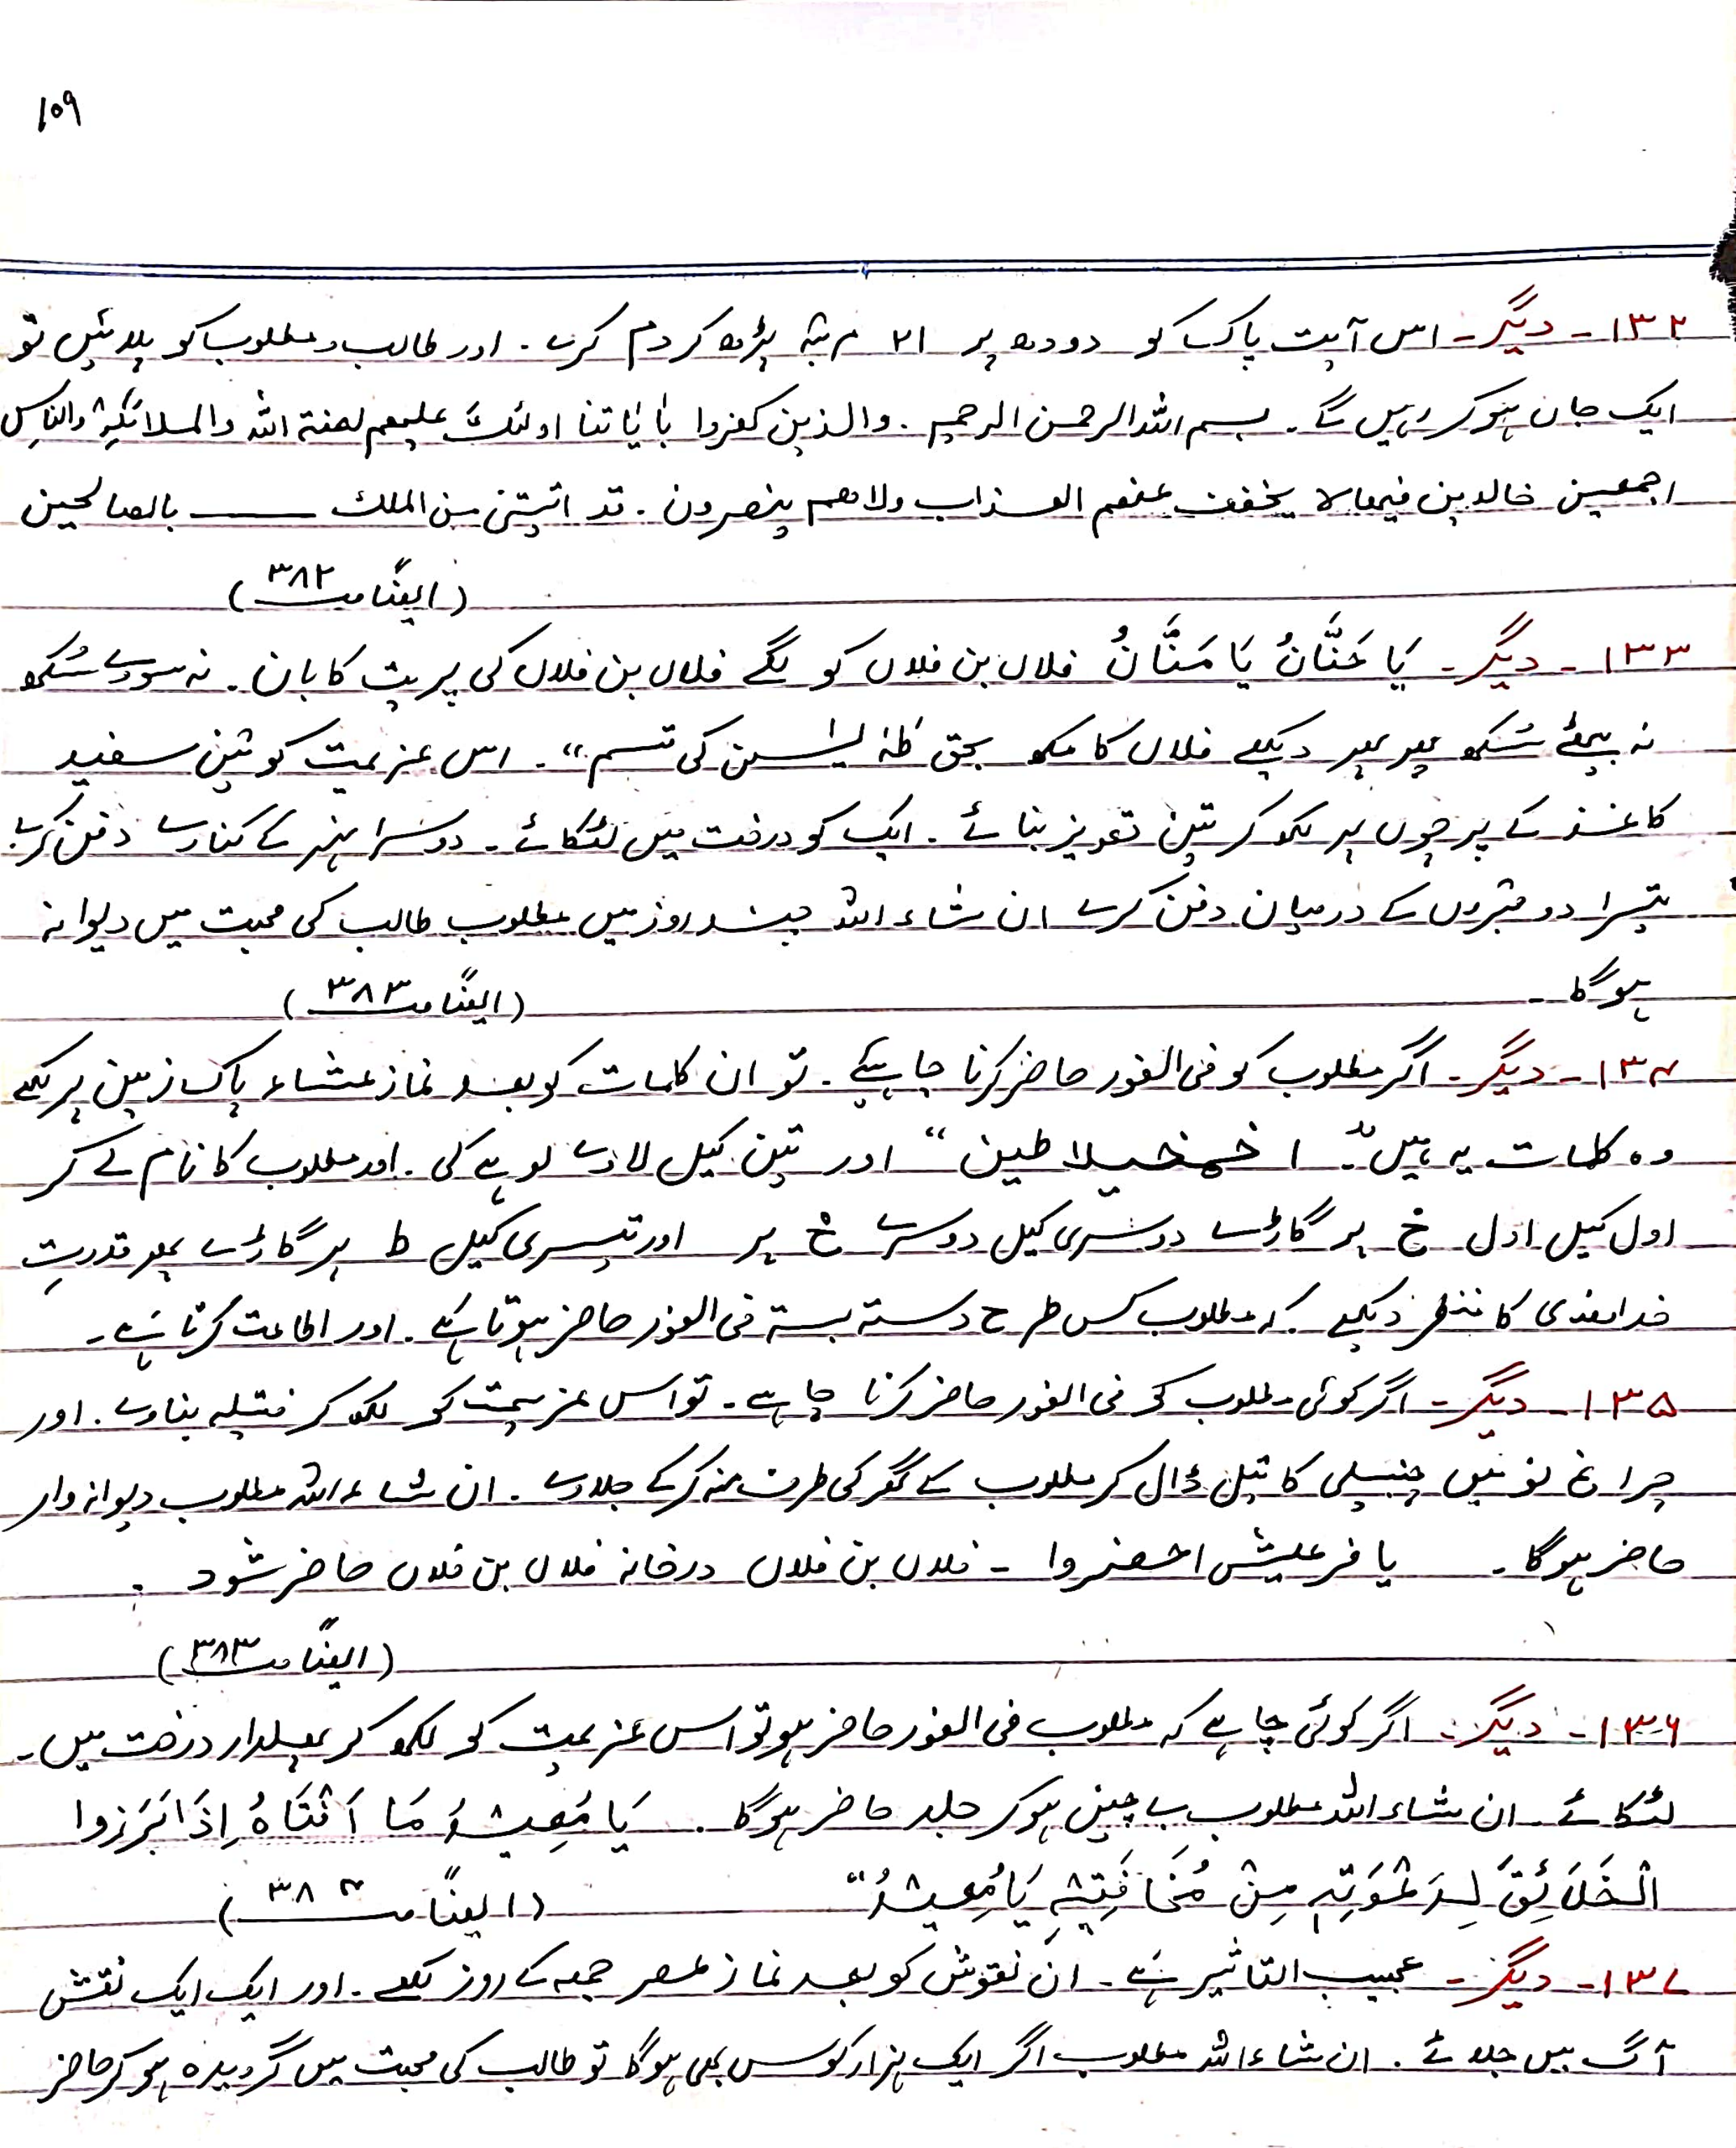 ۱۰۹
۱۳۲ـ دیگر ـ اس آیت پاک کو دودھ پر ۲۱ مرتبہ پڑھ کر دم کرے ۔ اور طالب و مطلوب کو پلائیں تو
ایک جان ہوکر رہیں گے ۔ بسم اللہ الرحمن الرحیم ۔ والذین کفروا باٰیاتنا اولئک علیھم لعنۃ اللہ والملائکۃ والناس
اجمعین خالدین فیھا لا یخفف عنھم العذاب ولا ھم ینصرون ۔ قد اتیتنی من الملک ــــــ بالصالحین
(ایضًا صـ ۳۸۲)
۱۳۳ـ دیگر ـ یَا حَنَّانُ یَا مَنَّانُ فلاں بن فلاں کو لگے فلاں بن فلاں کی پریت کا بان ۔ نہ سووے سُکھ
نہ بیٹھے سُکھ پھر پھر دیکھے فلاں کا مکھ بحق طٰہٰ یٰسین کی قسم“ ۔ اس عزیمت کو تین سفید
کاغذ کے پرچوں پر لکھ کر تین تعویز بنائے ۔ ایک کو درخت میں لٹکائے ۔ دوسرا نہر کے کنارے دفن کرے
تیسرا دو قبروں کے درمیان دفن کرے ان شاء اللہ چند روز میں مطلوب طالب کی محبت میں دیوانہ
ہوگا ۔ (ایضًا صـ ۳۸۳)
۱۳۴ـ دیگر ـ اگر مطلوب کو فی الفور حاضر کرنا چاہیے ۔ تو ان کلمات کو بعد نماز عشاء پاک زمین پر لکھے
وہ کلمات یہ ہیں ”۔ اخمخیلاطین“ اور تین کیل لاوے لوہے کی ۔ اور مطلوب کا نام لے کر
اول کیل اول خ پر گاڑے دوسری کیل دوسرے خ پر اور تیسری کیل ط پر گاڑے پھر قدرتِ
خداوندی کا دیکھے ۔ کہ مطلوب کس طرح دستہ بستہ فی الفور حاضر ہوتا ہے ۔ اور اطاعت کرتا ہے ۔
۱۳۵ـ دیگر ـ اگر کوئی مطلوب کو فی الفور حاضر کرنا چاہے ۔ تو اس عزیمت کو لکھ کر فتیلہ بناوے ۔ اور
چراغ نو میں چنبیلی کا تیل ڈال کر مطلوب کے گھر کی طرف منہ کرکے جلاوے ۔ ان شاء اللہ مطلوب دیوانہ وار
حاضر ہوگا ۔ یا فرعلیش احضروا ۔ فلاں بن فلاں درخانہ فلاں بن فلاں حاضر شود ۔
(ایضًا صـ ۳۸۳)
۱۳۶ـ دیگر ـ اگر کوئی چاہے کہ مطلوب فی الفور حاضر ہو تو اس عزیمت کو لکھ کر پھلدار درخت میں ۔
لٹکائے ۔ ان شاء اللہ مطلوب بے چین ہوکر جلد حاضر ہوگا ۔ یَا مَا اِذَا بَرَزوا
الْخَلَائِقَ لِدَعْوَتِہٖ مِنْ یَا
(ایضًا صـ ۳۸۴)
۱۳۷ـ دیگر ـ عجیب التاثیر ہے ۔ ان نقوش کو بعد نماز عصر جمعہ کے روز لکھے ۔ اور ایک ایک نقش
آگ میں جلائے ۔ ان شاء اللہ مطلوب اگر ایک ہزار کوس بھی ہوگا تو طالب کی محبت میں گرویدہ ہوکر حاضر